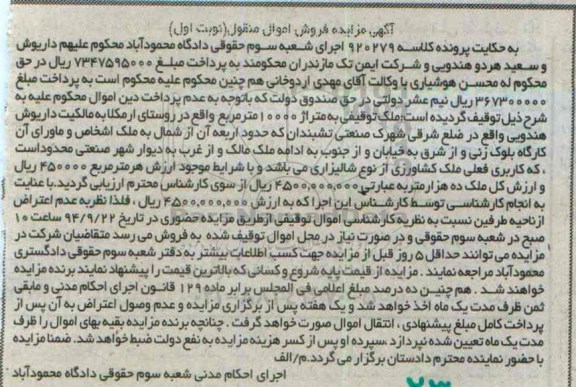 آگهی مزایده فروش اموال منقول(نوبت اول)
به حکایت پرونده کلاسه ۹۲۰۲۷۹ اجرای شعبه سوم حقوقی دادگاه محمودآباد محکوم علیهم داریوش
و سعید هردو هندویی و شرکت ایمن تک مازندران محکومند به پرداخت مبلغ ۷۳۴۷۵۹۵۰۰۰ ریال در حق
محکوم له محسن هوشیاری با وکالت آقای مهدی اردوخانی هم چنین محکوم علیه محکوم است به پرداخت مبلغ
۳۶۷۳۰۰۰۰۰ ریال نیم عشر دولتی در حق صندوق دولت که باتوجه به عدم پرداخت دین اموال محکوم علیه به
شرح ذیل توقیف گردیده است:ملک توقیفی به متراژ ۱۰۰۰۰مترمربع واقع در روستای ارمکلا به مالکیت داریوش
هندویی واقع در ضلع شرقی شهرک صنعتی تشبندان که حدود اربعه آن از شمال به ملک اشخاص و ماورای آن
کارگاه بلوک زنی و از شرق به خیابان و از جنوب به ادامه ملک مالک و از غرب به دیوار شهر صنعتی محدوداست
، که کاربری فعلی ملک کشاورزی از نوع شالیزاری می باشد و با شرایط موجود ارزش هرمترمربع ۴۵۰۰۰۰ ریال
و ارزش کل ملک ده هزارمتربه عبارتی ۴۵۰۰,۰۰۰,۰۰۰ ریال از سوی کارشناس محترم ارزیابی گردید.با عنایت
به انجام کارشناسی توسط کارشناس این اجرا که به ارزش ۴۵۰۰,۰۰۰,۰۰۰ ریال ، فلذا نظر به عدم اعتراض
ازناحیه طرفین نسبت به نظریه کارشناسی اموال توقیفی ازطریق مزایده حضوری در تاریخ ۹۴/۹/۲۲ ساعت ۱۰
صبح در شعبه سوم حقوقی و در صورت نیاز در محل اموال توقیف شده به فروش می رسد متقاضیان شرکت در
مزایده می توانند حداقل ۵ روز قبل از مزایده جهت کسب اطلاعات بیشتر به دفتر شعبه سوم حقوقی دادگستری
محمودآباد مراجعه نمایند . مزایده از قیمت پایه شروع و کسانی که بالاترین قیمت را پیشنهاد نمایند برنده مزایده
خواهند شد . هم چنین ده درصد مبلغ اعلامی فی المجلس برابر ماده ۱۲۹ قانون اجرای احکام مدنی و مابقی
ثمن ظرف مدت یک ماه اخذ خواهد شد و یک هفته پس از برگزاری مزایده و عدم وصول اعتراض به آن پس از
پرداخت کامل مبلغ پیشنهادی ، انتقال اموال صورت خواهد گرفت . چنانچه برنده مزایده بقیه بهای اموال را ظرف
مدت یک ماه تعیین شده نپردازد ،سپرده او پس از کسر هزینه مزایده به نفع دولت ضبط خواهد شد. ضمنا مزایده
با حضور نماینده محترم دادستان برگزار می گردد.م/الف
اجرای احکام مدنی شعبه سوم حقوقی دادگاه محمودآباد